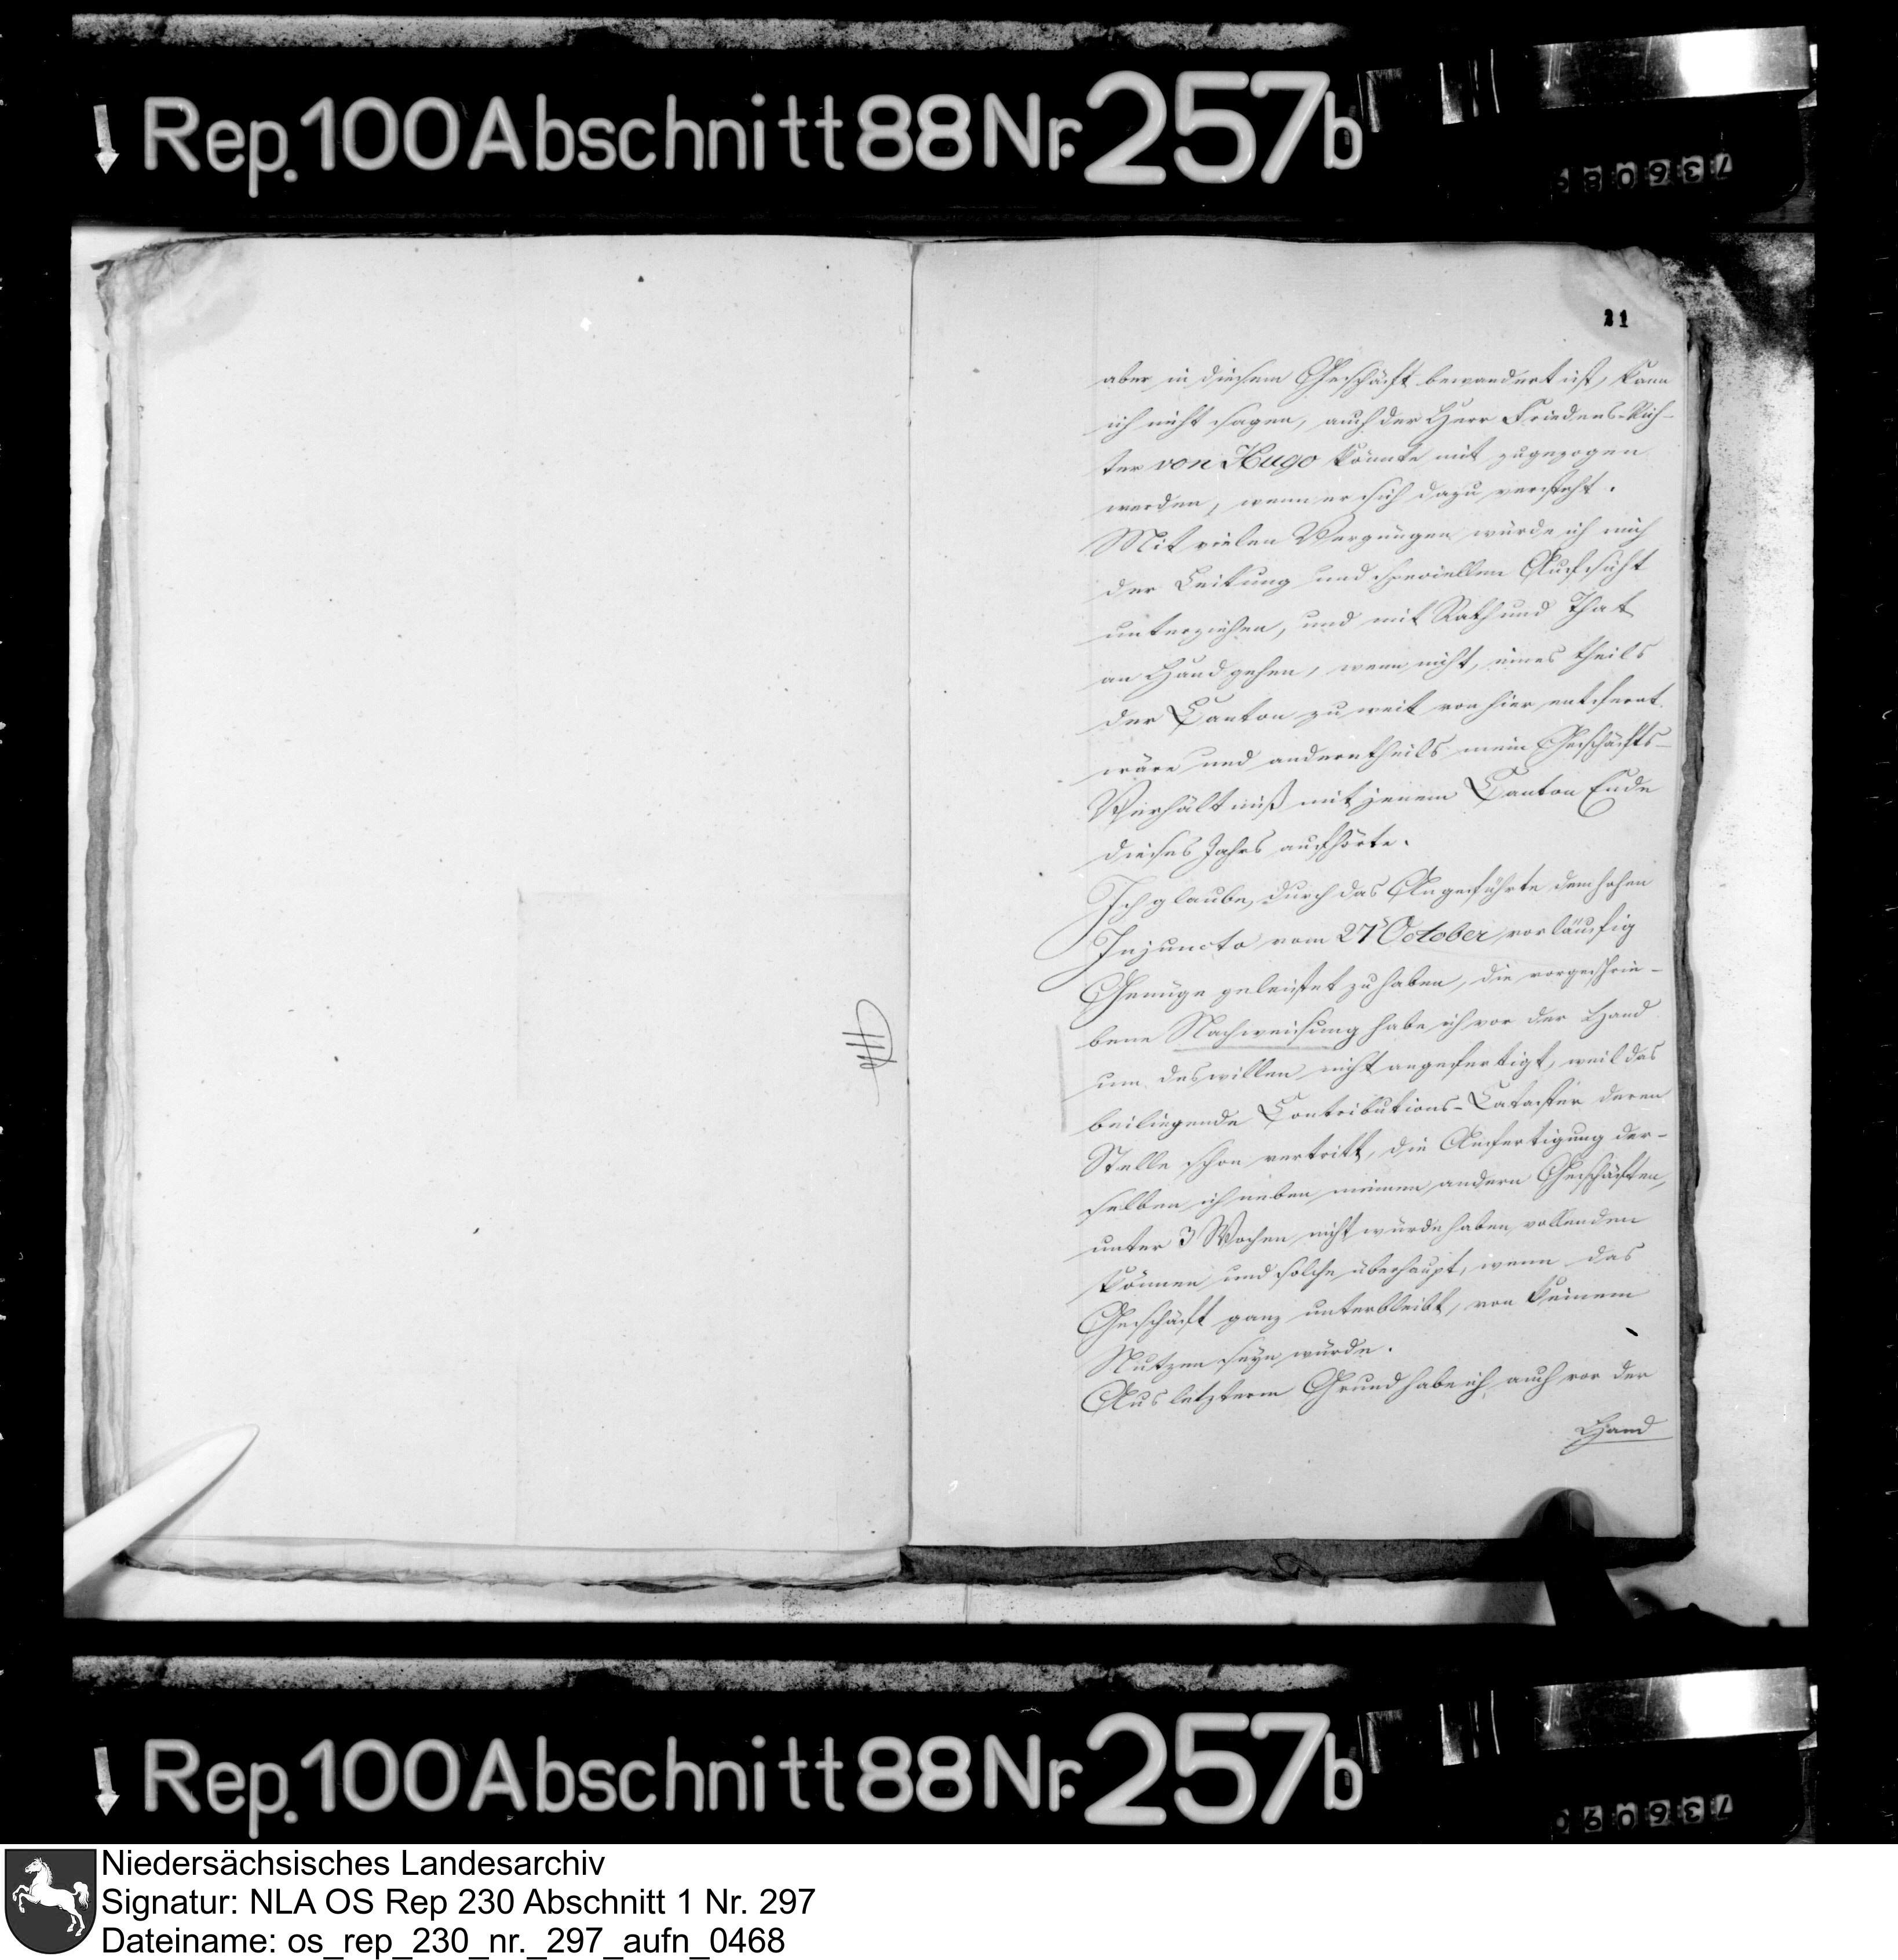 Rep. 100 Abschnitt 88 Nr. 257b
21
aber in diesem Geschäft bewandert ist, kann
ich nicht sagen, auch der Herr Friedens-Rich-
ter von Hugo könnte mit zugezogen
werden, wenn er sich dazu versteht.
Mit vielen Vergnügen würde ich mich
der Leitung und speciellen Aufsicht
unterziehen, und mit Rath und That
an Hand gehen, wenn nicht, eines theils
der Canton zu weit von hier entfernt
wäre und anderntheils mein Geschäfts-
Verhältniß mit jenem Canton Ende
dieses Jahrs aufhörte.
Ich glaube, durch das Angeführte dem hohen
Injuncto vom 27 October vorläufig
Genüge geleistet zu haben, die vorgeschrie-
bene Nachweisung habe ich vor der Hand
um deswillen nicht angefertigt, weil das
beiliegende Contributions-Cataster deren
Stelle schon vertritt, die Anfertigung der-
selben ich neben meinen andern Geschäften,
unter 3 Wochen nicht würde haben vollenden
können und solche überhaupt, wenn das
Geschäft ganz unterbleibt, von keinem
Nutzen seyn würde.
Aus letzterm Grund habe ich auch vor der
Hand
Rep. 100 Abschnitt 88 Nr. 257b
Niedersächsisches Landesarchiv
Signatur: NLA OS Rep 230 Abschnitt 1 Nr. 297
Dateiname: os_rep_230_nr._297_aufn_0468